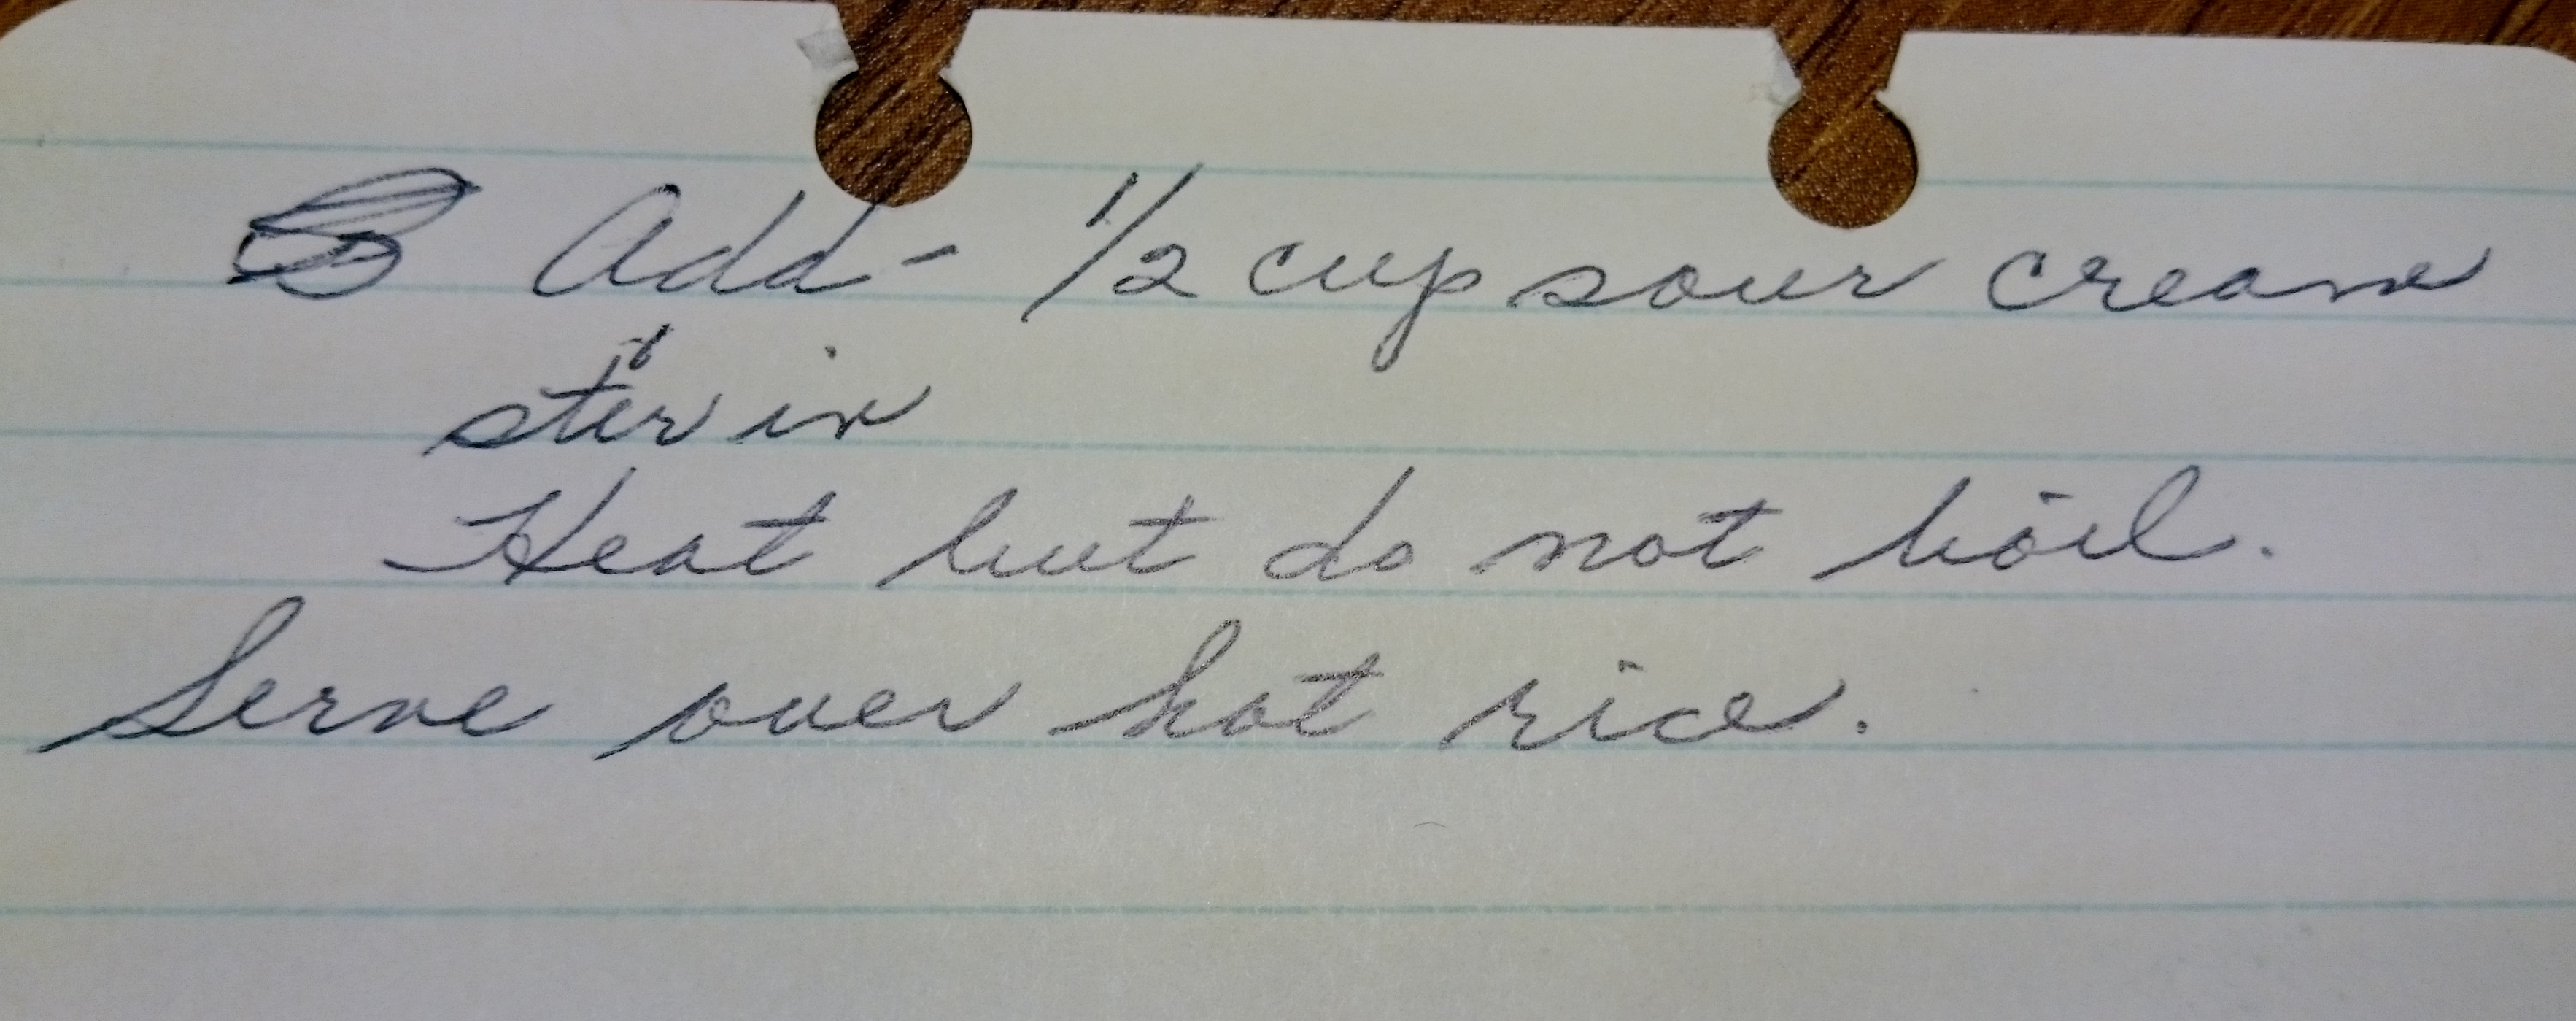 Add - 1/2 cup sour cream
stir in
Heat but do not boil.
Serve over hot rice.